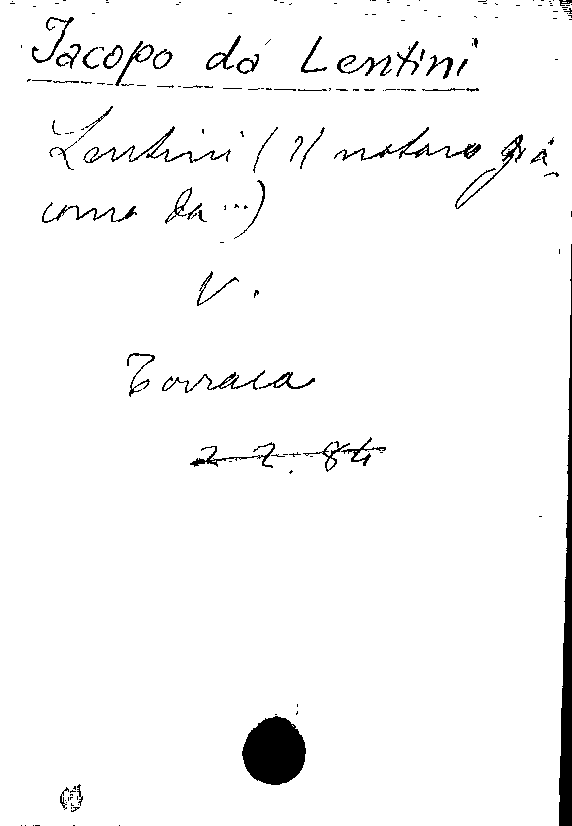 Jacopo da Lentini
Lentini (Il notaro Gia
como da ...)
V.
Torraca
2 2. 84